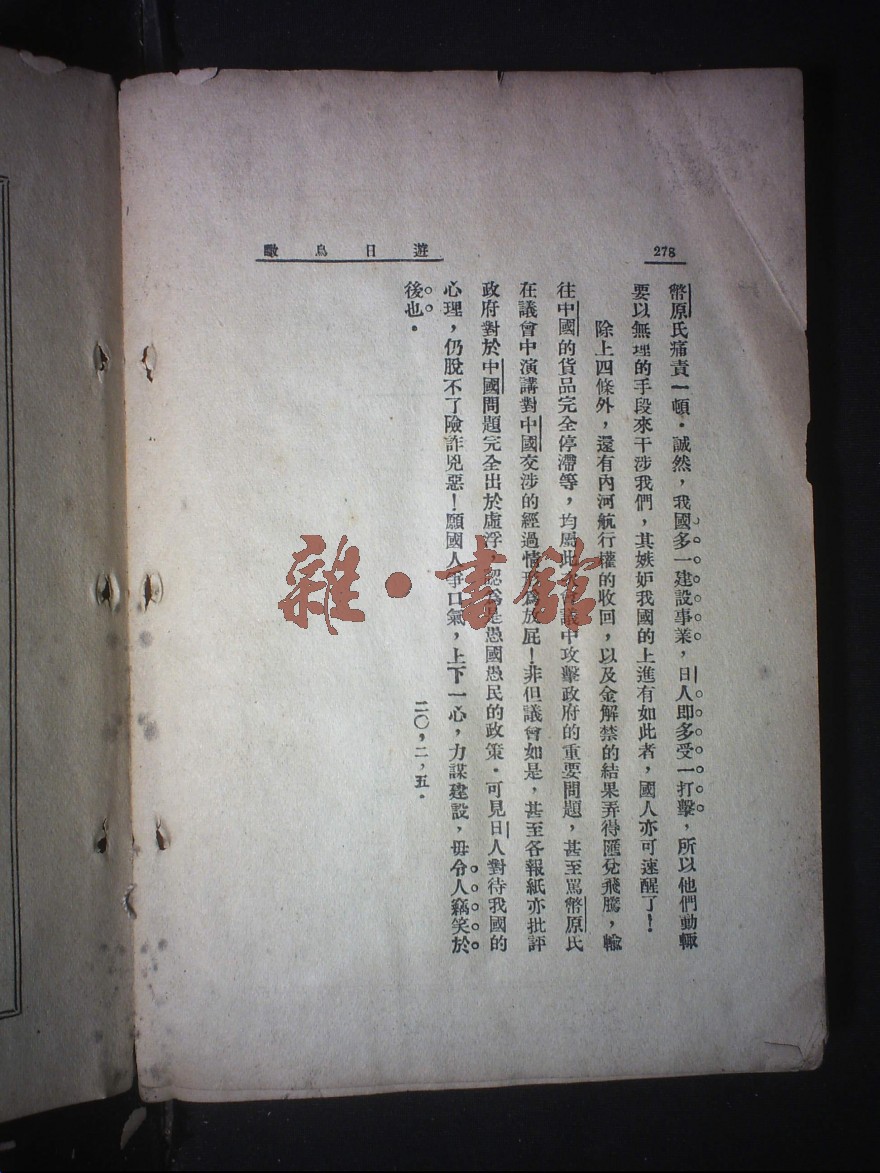 278
遊日鳥瞰
幣原氏痛責一頓．誠然，我國多一建設事業，日人即多受一打擊，所以他們動輒
要以無理的手段來干涉我們，其嫉妒我國的上進有如此者，國人亦可速醒了！
除上四條外，還有內河航行權的收回，以及金解禁的結果弄得匯兌飛騰，輸
往中國的貨品完全停滯等，均屬此次會議中攻擊政府的重要問題，甚至罵幣原氏
在議會中演講對中國交涉的經過情形為放屁！非但議會如是，甚至各報紙亦批評
政府對於中國問題完全出於虛浮，認為是愚國愚民的政策．可見日人對待我國的
心理，仍脫不了險詐兇惡！願國人爭口氣，上下一心，力謀建設，毋令人竊笑於
後也．
二〇，二，五．
雜·書館